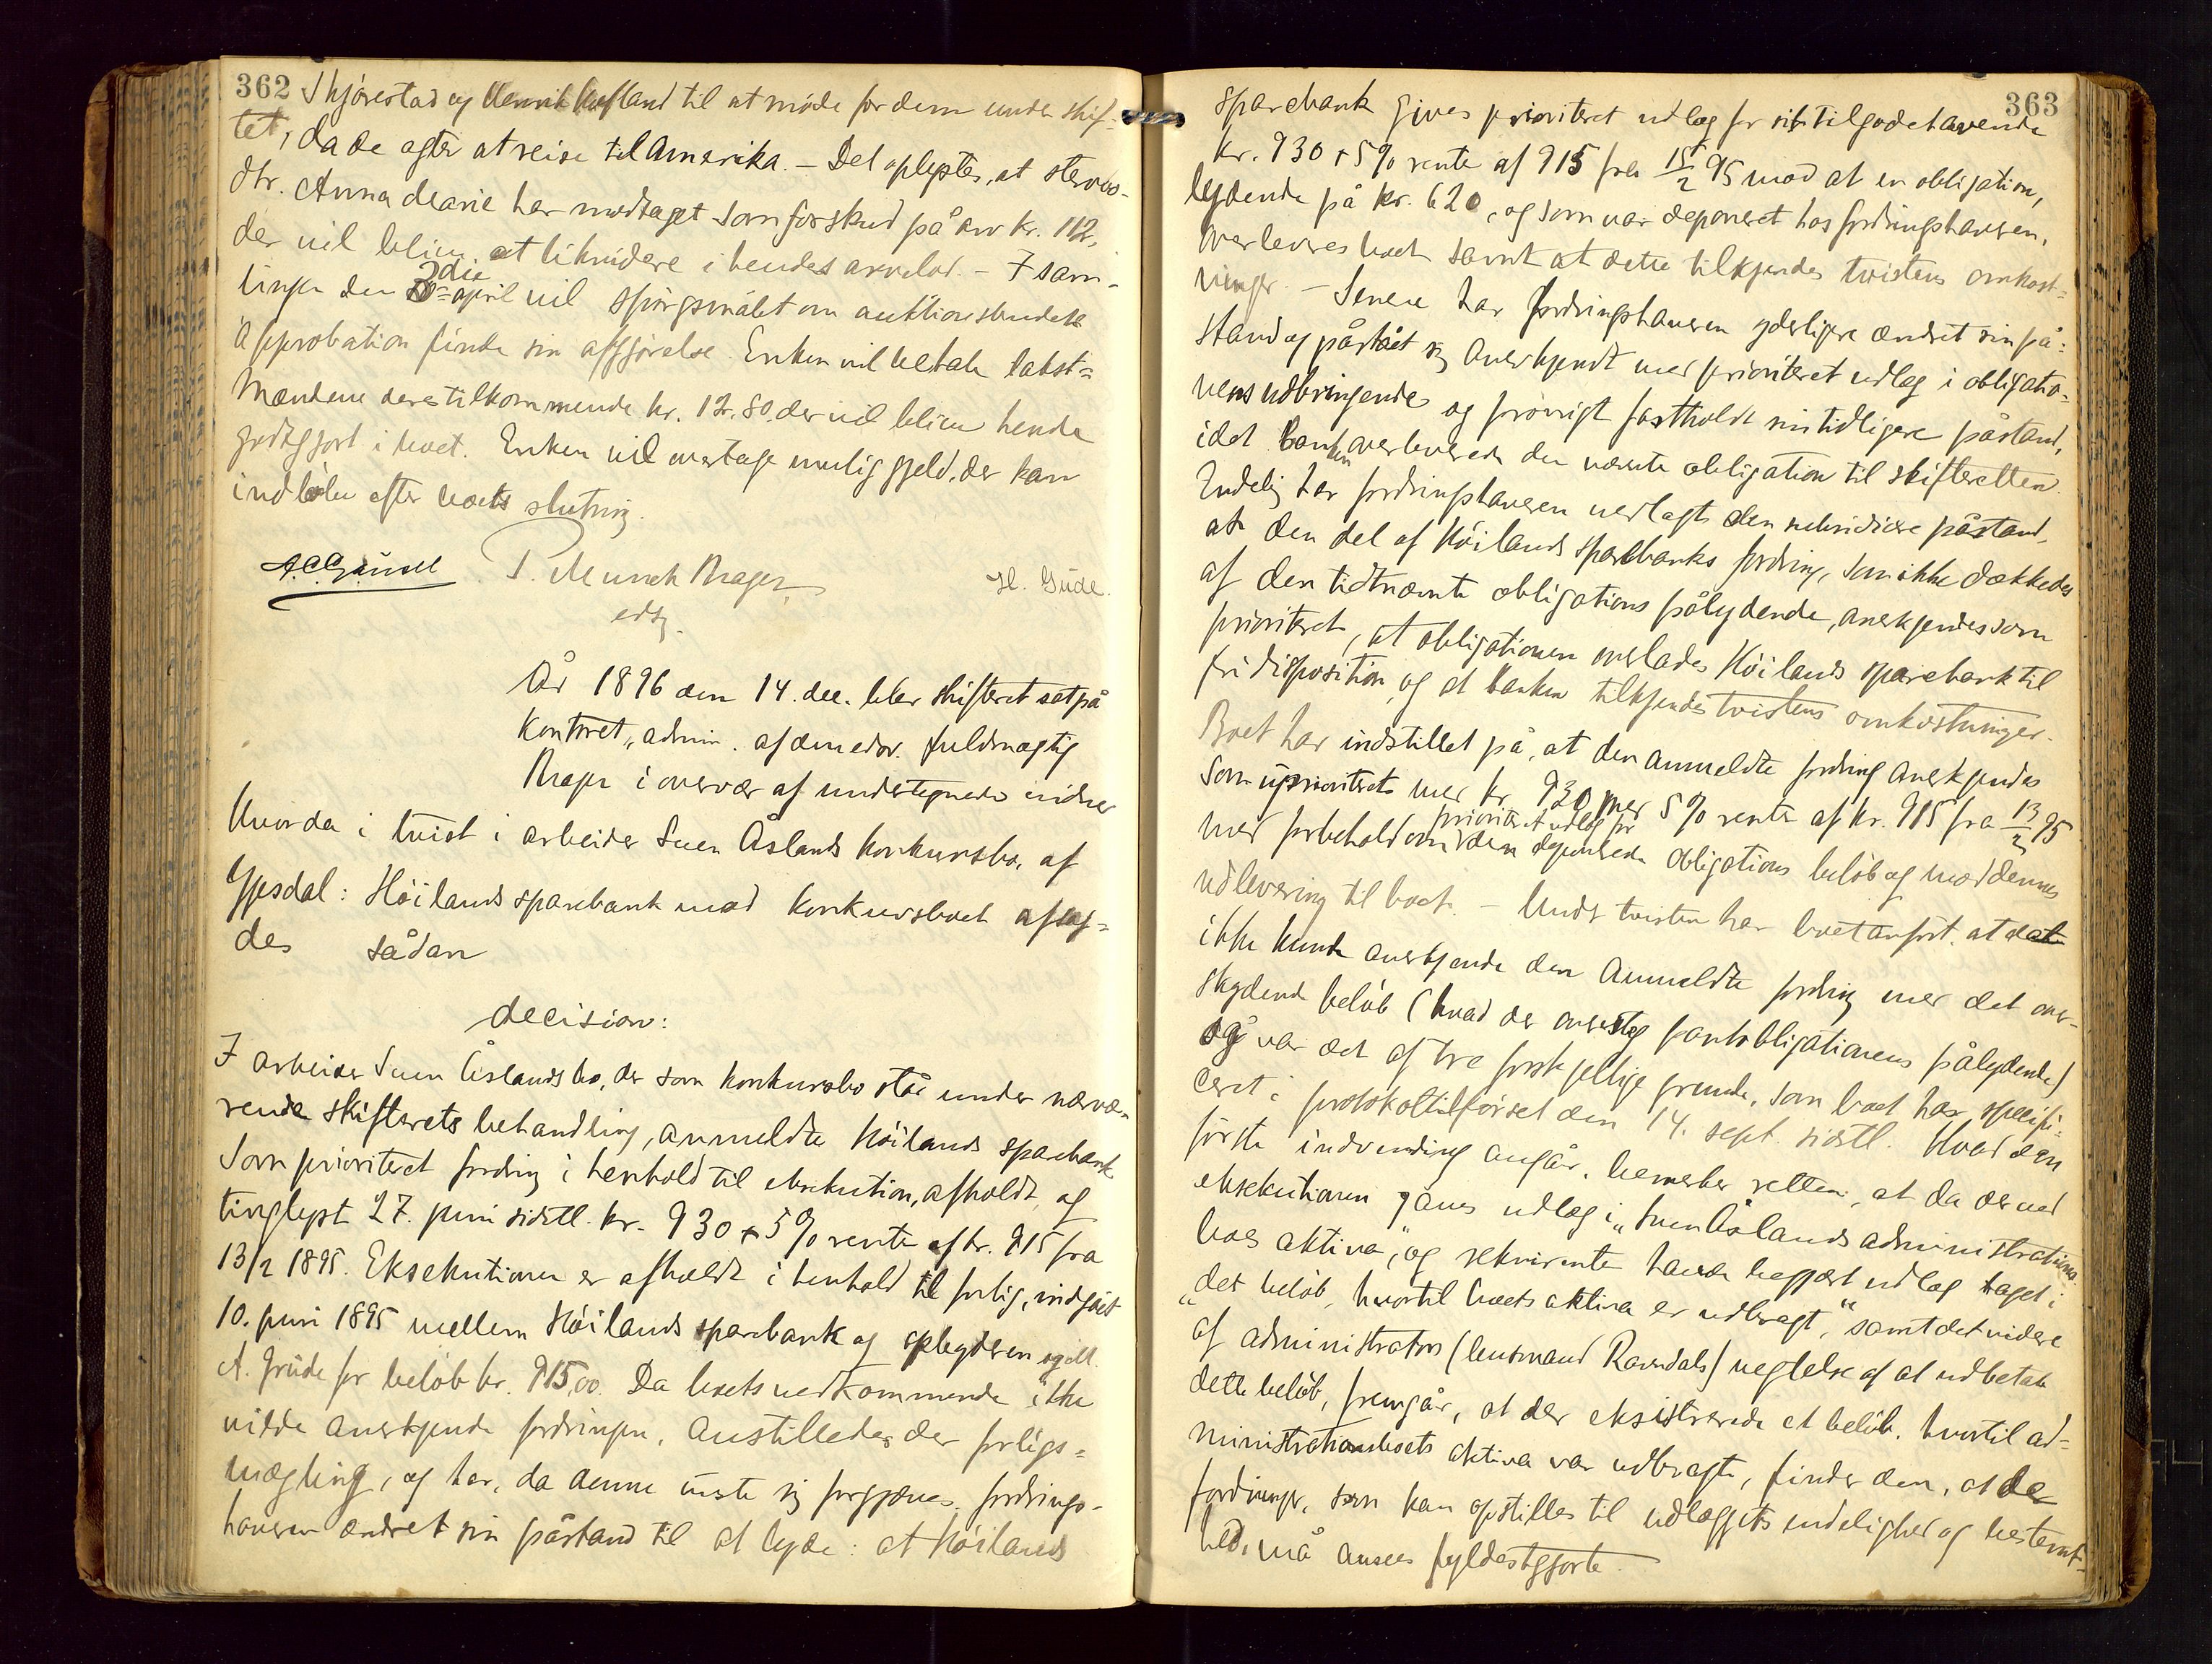 362 Skjörestad og Henrik Hofland til at möde for dem under skif-
tet, da de agter at reise til Amerika. - Det oplystes, at stervbo-
dtr. Anna Marie har modtaget som forskud på arv kr. 112,
der vil blive at likvidere i hendes arvelod. - I sam-
lingen den 3die april vil spörgsmålet om auktionsbudets
approbation finde sin afgjörelse. Enken vil betale takst-
mændene deres tilkommende kr. 12.80, der vil blive hende
godtgjort i boet. Enken vil overtage mulig gjeld, der kan
indlöbe efter boets slutning.
P. Munch Brager H. Gude.
edsv.
År 1896 den 14. dec. blev skifteret sat på
kontoret, admin. af den edsv. fuldmægtig
Brager i overvær af undertegnede vidner
Hvorda i tvist i arbeider Sven Åslands konkursbo, af
Gjesdal: Höilands sparebank mod konkursboet afsag-
des sådan
decision:
I arbeider Sven Åslands bo, der som konkursbo står under nærvæ-
rende skifterets behandling, anmeldte Höilands sparebank
som prioriteret fordring i henhold til eksekution, afholdt og
tinglyst 27. juni sidstl. kr. 930 + 5 % rente af kr. 915 fra
13/2 1895. Eksekutionen er afholdt i henhold til forlig, indgået
10. juni 1895 mellem Höilands sparebank og oplyderen
A. Grude for belöb kr. 915,00. Da boets vedkommende ikke
vilde anerkjende fordringen, anstilledes der forligs-
mægling, og har, da denne viste sig forgjæves, fordrings-
haveren ændret sin påstand til at lyde: at Höilands
363
sparebank gives prioriteret udlæg for sit tilgodehavende
kr. 930 + 5 % rente af 915 fra 15/2 95 mod at en obligation,
lydende på kr. 620, og som var deponeret hos fordringshaveren,
overleveres boet samt at dette tilkjendes tvistens omkost-
ninger. - Senere har fordringshaveren yderligere ændret sin på-
stand og påstået sig anerkjendt med prioriteret udlæg i obligatio-
nens udbringende og forövrigt fastholdt sin tidligere påstand,
idet banken overleverede den nævnte obligation til skifteretten.
Endelig har fordringshaveren nedlagt den subsidiære påstand,
at den del af Höilands sparebanks fordring, som ikke dækkedes
af den tidtnævnte obligations pålydende, anerkjendes som
prioriteret, at obligationen overlades Höilands sparebank til
fri disposition, og at banken tilkjendes tvistens omkostninger.
Boet har indstillet på, at den anmeldte fordring anerkjendes
som uprioriteret med kr. 930 med 5 % rente af kr. 915 fra 13/2 95
med forbehold om prioriteret udlæg for den deponerede obligations belöb og mod dennes
udlevering til boet. - Under tvisten har boet anfört, at det
ikke kunde anerkjende den anmeldte fordring med det over-
skydende belöb (hvad der oversteg pantobligationens pålydende)
og var det af tre forskjellige grunde, som boet har specifi-
ceret i protokoltilförsel den 14. sept. sidstl. Hvad den
förste indvending angår, bemerker retten, at da der ved
eksekutionen gaves udlæg i "Sven Åslands administrations-
boes aktiva," og rekvirenten havde begjært udlæg taget i
"det belöb, hvortil boets aktiva er udbragt," samt det videre
af administrators (lensmand Ravndals) negtelse af at udbetale
dette belöb, fremgår, at der eksisterede et belöb, hvortil ad-
ministrationsboets aktiva var udbragt, finder den, at de
fordringer, som kan opstilles til udlæggets endelighed og bestemt-
hed, må ansees fyldestgjorte.